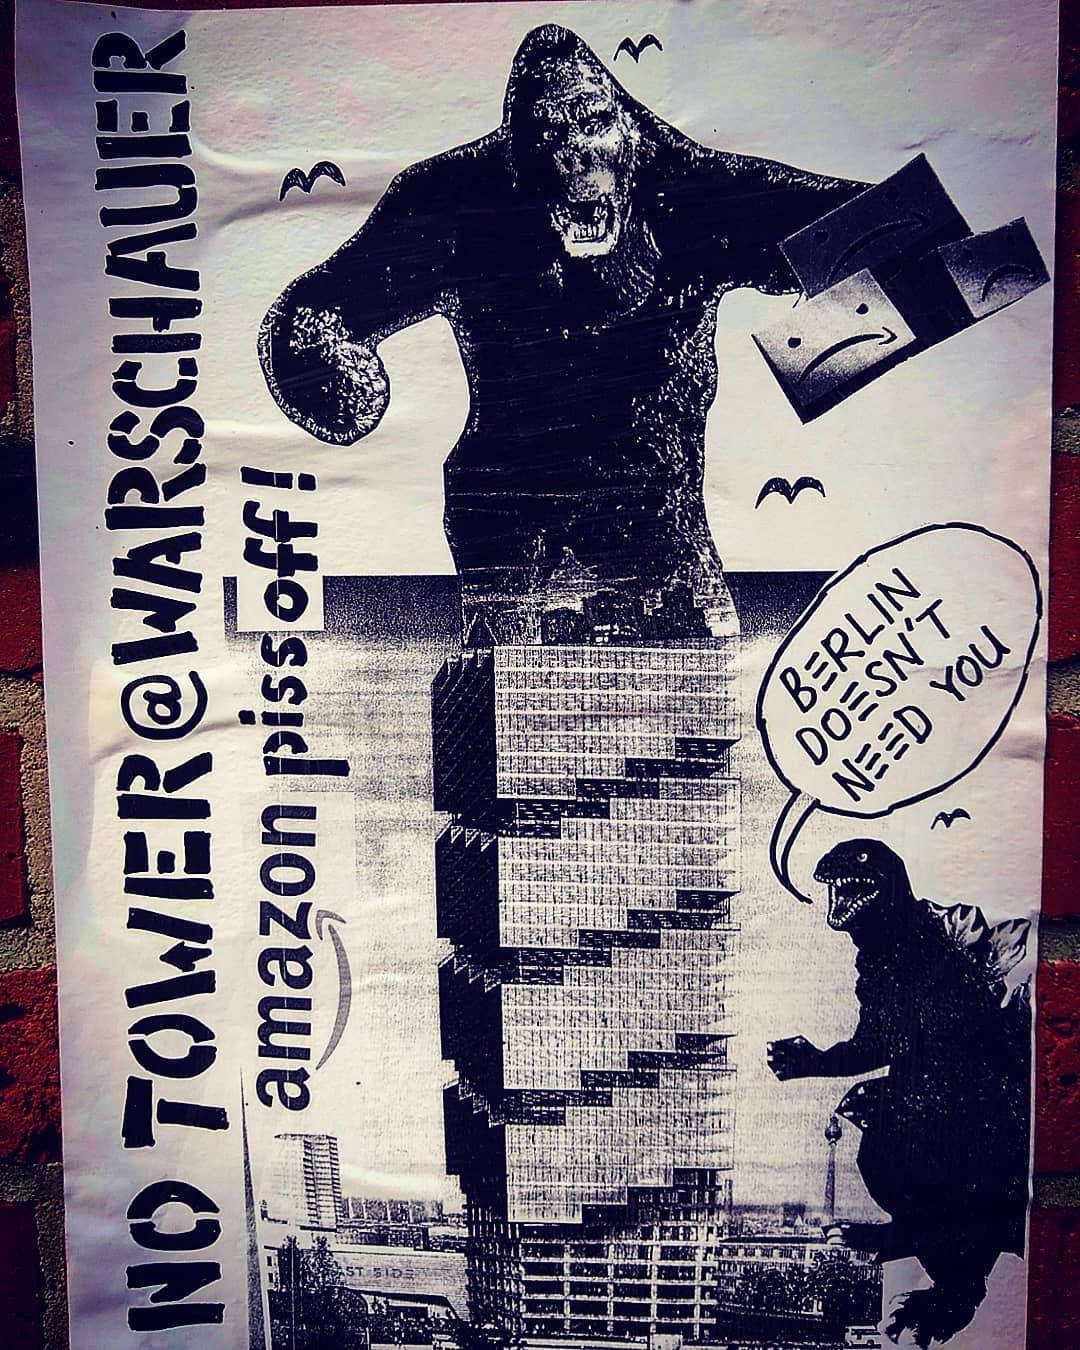 NO TOWER@WARSCHAUER
amazon piss off!
BERLIN
DOESN'T
NEED YOU
EAST SIDE